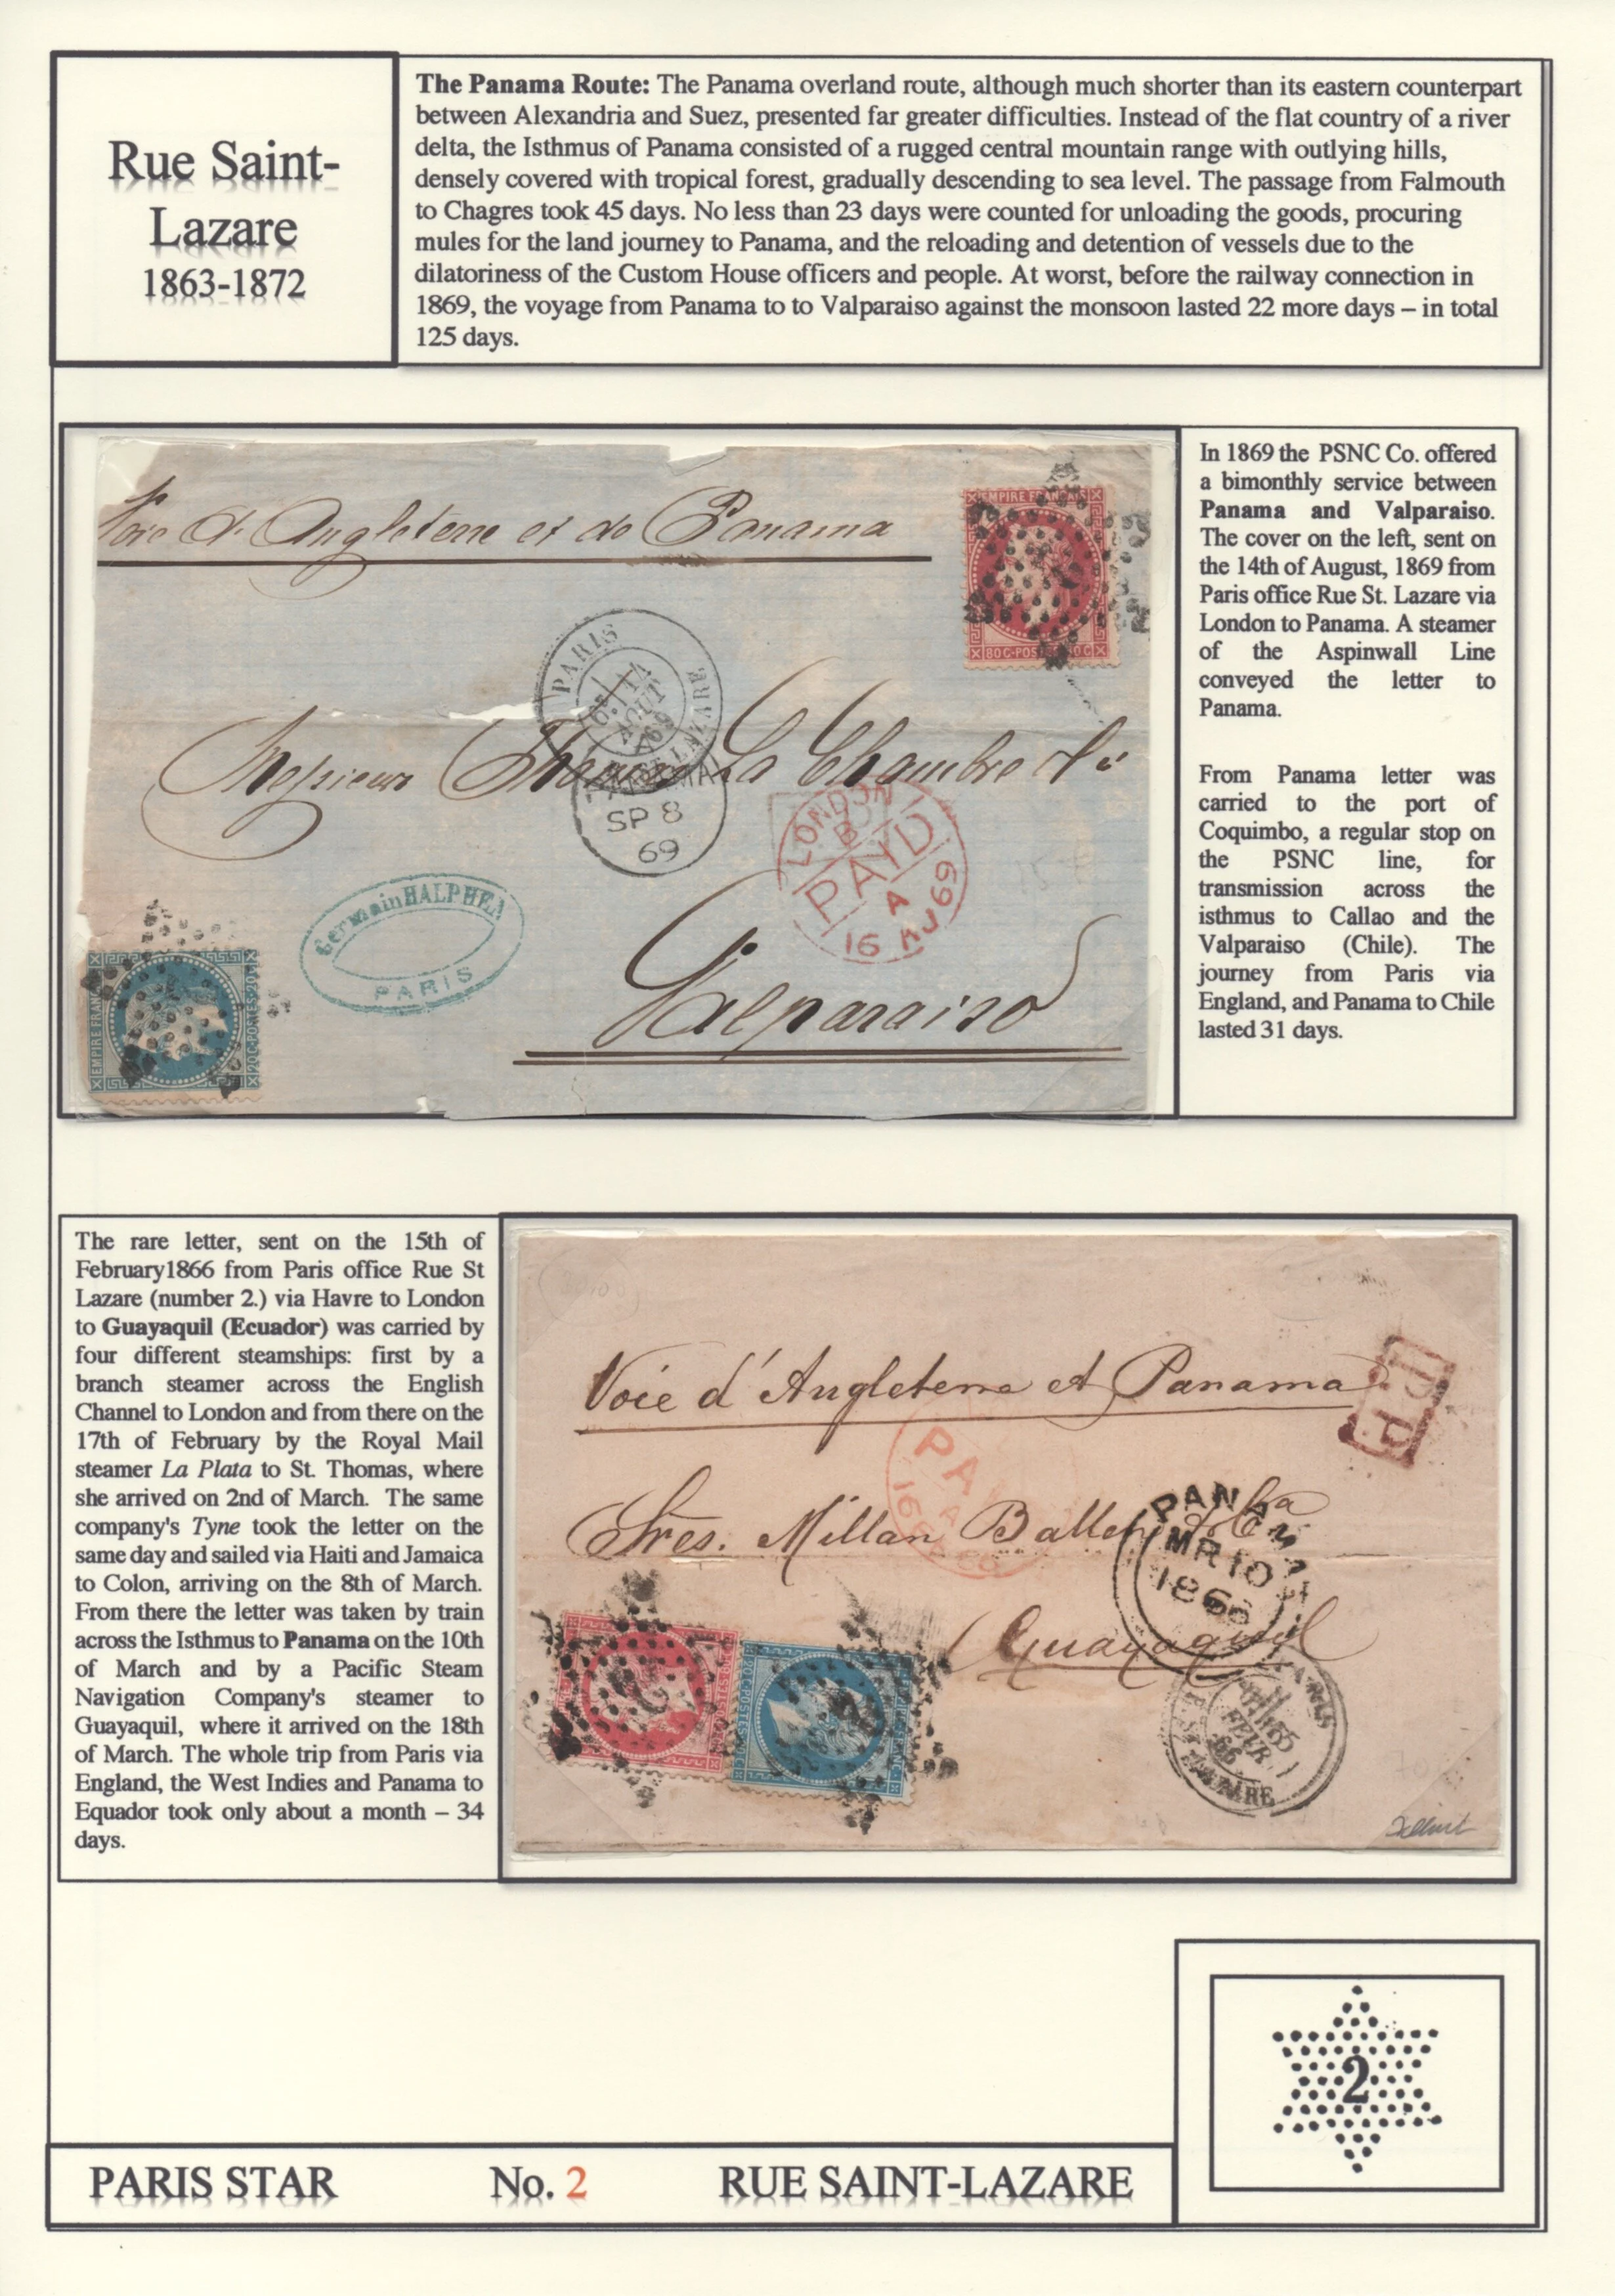 Rue Saint-
Lazare
1863-1872
The Panama Route: The Panama overland route, although much shorter than its eastern counterpart
between Alexandria and Suez, presented far greater difficulties. Instead of the flat country of a river
delta, the Isthmus of Panama consisted of a rugged central mountain range with outlying hills,
densely covered with tropical forest, gradually descending to sea level. The passage from Falmouth
to Chagres took 45 days. No less than 23 days were counted for unloading the goods, procuring
mules for the land journey to Panama, and the reloading and detention of vessels due to the
dilatoriness of the Custom House officers and people. At worst, before the railway connection in
1869, the voyage from Panama to to Valparaiso against the monsoon lasted 22 more days – in total
125 days.
Voie d'Angleterre et de Panama
EMPIRE FRANÇAIS
80 C-POS
PARIS
14
AOUT
69
ST LAZARE
Messieurs Thomas La Chambre &
PANAMA
SP 8
69
LONDON
B
PAID
A
16 AU 69
Germain HALPHEN
PARIS
EMPIRE FRANC
20 C-POSTES-20
Valparaiso
In 1869 the PSNC Co. offered
a bimonthly service between
Panama and Valparaiso.
The cover on the left, sent on
the 14th of August, 1869 from
Paris office Rue St. Lazare via
London to Panama. A steamer
of the Aspinwall Line
conveyed the letter to
Panama.
From Panama letter was
carried to the port of
Coquimbo, a regular stop on
the PSNC line, for
transmission across the
isthmus to Callao and the
Valparaiso (Chile). The
journey from Paris via
England, and Panama to Chile
lasted 31 days.
The rare letter, sent on the 15th of
February1866 from Paris office Rue St
Lazare (number 2.) via Havre to London
to Guayaquil (Ecuador) was carried by
four different steamships: first by a
branch steamer across the English
Channel to London and from there on the
17th of February by the Royal Mail
steamer La Plata to St. Thomas, where
she arrived on 2nd of March. The same
company's Tyne took the letter on the
same day and sailed via Haiti and Jamaica
to Colon, arriving on the 8th of March.
From there the letter was taken by train
across the Isthmus to Panama on the 10th
of March and by a Pacific Steam
Navigation Company's steamer to
Guayaquil, where it arrived on the 18th
of March. The whole trip from Paris via
England, the West Indies and Panama to
Equador took only about a month – 34
days.
Voie d'Angleterre et Panama
P.P.
PAID
Sres. Millan Ballen & Ca
PANAMA
MR 10
1866
Guayaquil
PARIS
FEVR
66
LAZARE
2
PARIS STAR No. 2 RUE SAINT-LAZARE